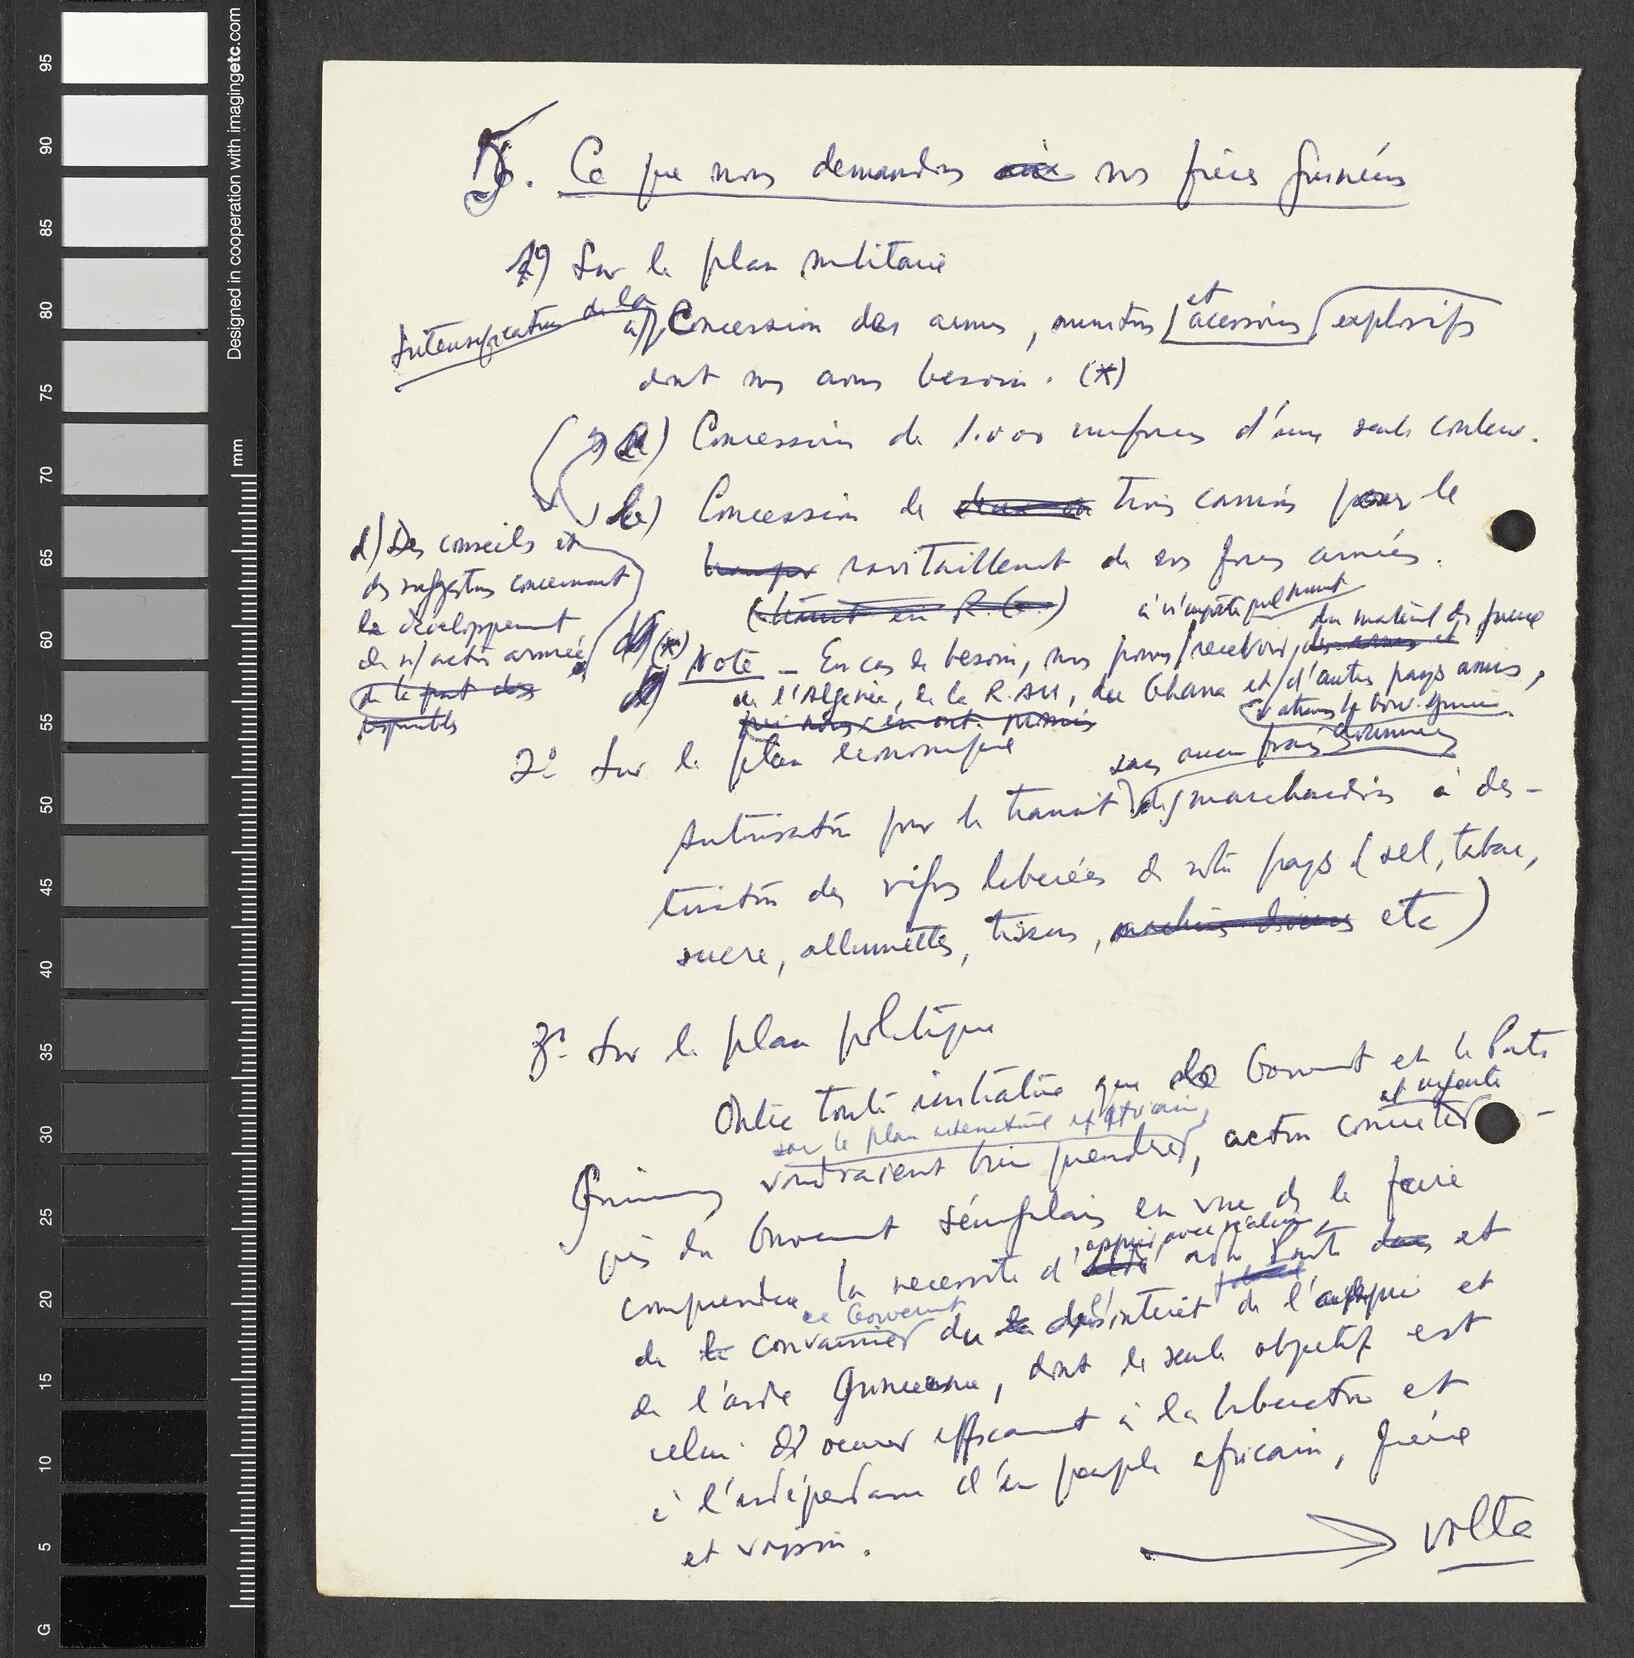 5. Ce que nous demandons nos frères guinéens
1º) Sur le plan militaire
Intensification de la
a) Concession des armes, munitions et acessoires explosifs
dont nous avons besoin. (*)
Concession de 1.000 uniformes d'une seule couleur.
b) Concession de trois camions pour le
ravitaillement de nos forces armées.
(étant en R.G.)
d) Des conseils et
des suggestions concernant
le développement
de n/action armée
de la part des
responsables
(*) Note - En cas de besoin, nous pouvons recevoir, à n'importe quel moment du matériel de guerre
de l'Algérie, de la R.A.U, du Ghana et d'autres pays amis,
qui nous en ont promis
2º Sur le plan économique
sans aucun frais
Autorisation pour le transit des marchandises à des-
tination des régions liberées de notre pays (sel, tabac,
sucre, allumettes, tissus, etc)
3º- Sur le plan politique
Outre toute initiative que le Gouvernement et le Parti
sur le plan international et africain,
et urgente
Guinéens voudraient bien prendre, action concrète
près du Gouvernement Sénégalais en vue de le faire
appui
comprendre la necessité d' notre Parti et
ce Gouvernement
de convaincre du désintérêt de l'appui et
de l'aide Guinéenne, dont le seule objetif est
celui d'oeuvrer efficacement à la liberation et
à l'indépendance d'un peuple africain, frère
et voisin.
volte
Designed in cooperation with imagingetc.com
mm
95
90
85
80
75
70
65
60
55
50
45
40
35
30
25
20
15
10
5
G